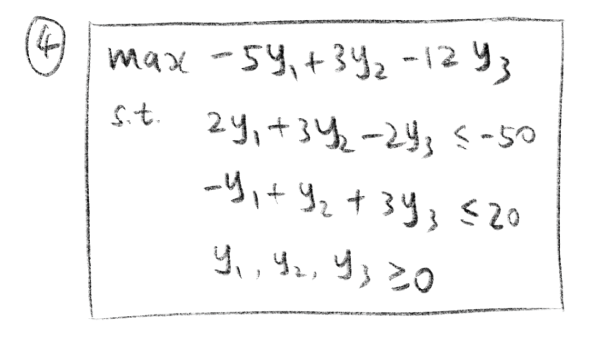 ④ max -5y₁+3y₂-12y₃
s.t. 2y₁+3y₂-2y₃ ≤-50
-y₁+y₂+3y₃ ≤20
y₁, y₂, y₃ ≥0